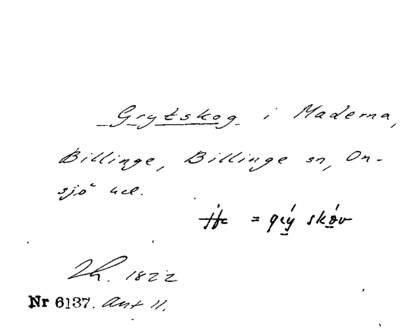 Grytskog i Maderna,
Billinge, Billinge sn, On-
sjö hd.
= grý skóv
Th. 1822
Nr 6137. Ant 11.